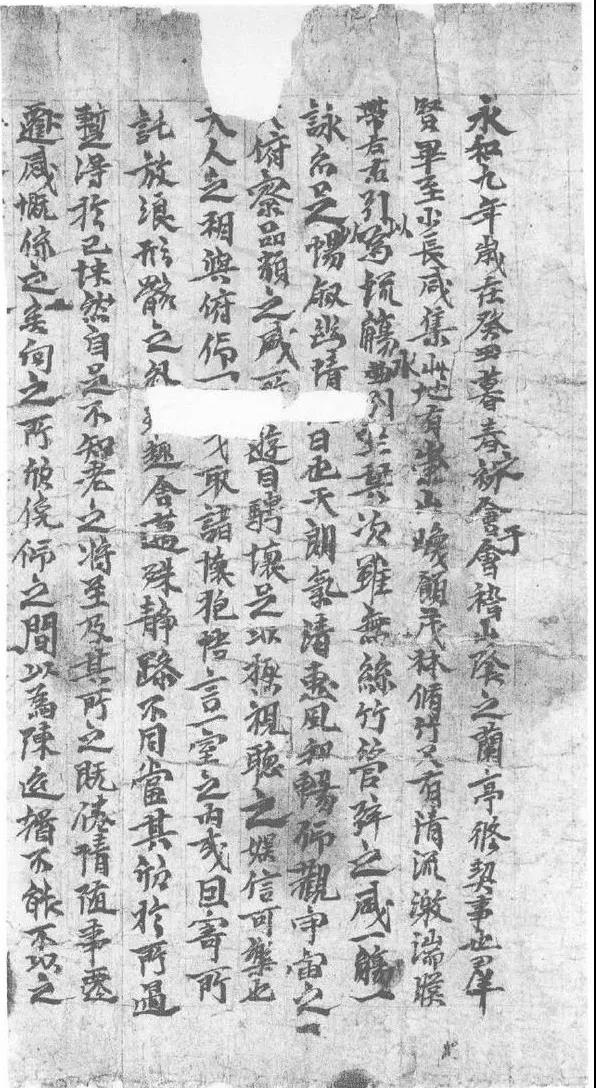 永和九年歲在癸丑暮春之初會于會稽山陰之蘭亭脩禊事也羣
賢畢至少長咸集此地有崇山峻領茂林脩竹又有清流激湍暎
帶左右引以為流觴曲水列坐其次雖無絲竹管弦之盛一觴一
詠亦足以暢敘幽情日也天朗氣清惠風和暢仰觀宇宙之
俯察品類之盛所遊目騁懷足以極視聽之娛信可樂也
夫人之相與俯仰一或取諸懷抱悟言一室之內或因寄所
託放浪形骸之外趣舍萬殊靜躁不同當其欣於所遇
蹔得於己怏然自足不知老之將至及其所之既倦情隨事遷
遷感慨係之矣向之所欣俛仰之間以為陳迹猶不能不以之